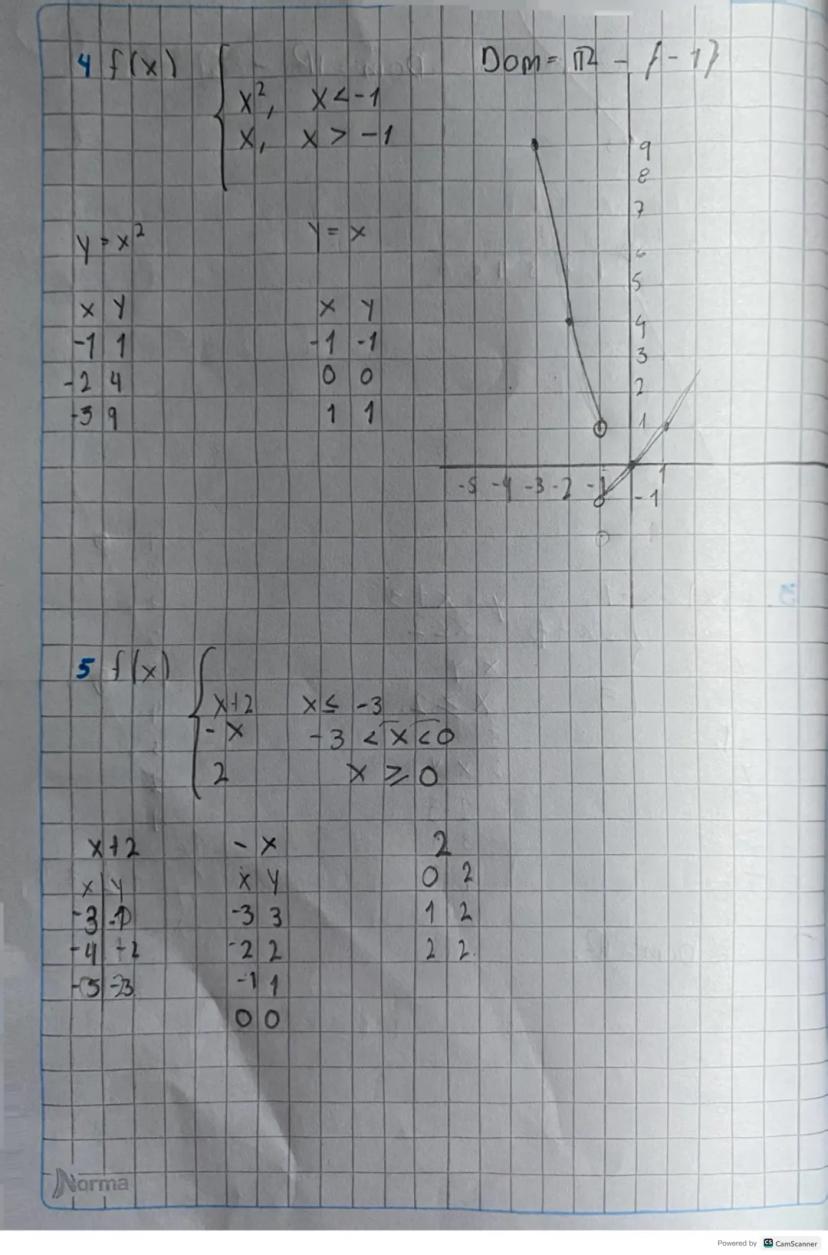 4 f(x) { x², x < -1
x, x > -1
Dom = ℝ - {-1}
y = x²
x y
-1 1
-2 4
-3 9
y = x
x y
-1 -1
0 0
1 1
9
8
7
6
5
4
3
2
1
-5 -4 -3 -2 -1 1
-1
5 f(x) { x+2 x ≤ -3
-x -3 < x < 0
2 x ≥ 0
x+2
x y
-3 -1
-4 -2
-5 -3
-x
x y
-3 3
-2 2
-1 1
0 0
2
0 2
1 2
2 2
Norma
Powered by CS CamScanner